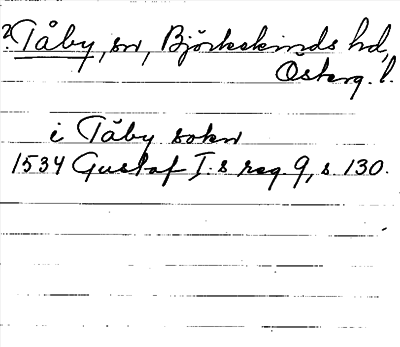 2. Tåby, sn, Björkekinds hd,
Österg. l.
i Tåby sokn
1534 Gustaf I:s reg. 9, s. 130.